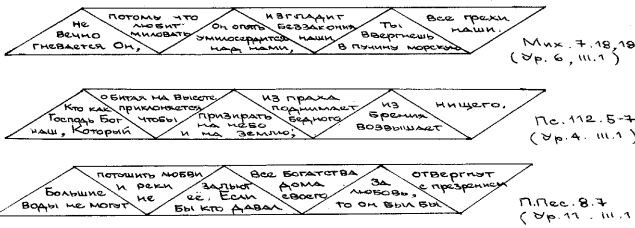 Не
вечно
гневается Он,
потому что
любит
миловать
Он опять
умилосердится
над нами,
изгладит
беззакония
наши
Ты
ввергнешь
в пучину морскую
все грехи
наши.
Мих. 7. 18, 19
(Ур. 6, III.1)
Кто как
Господь Бог
наш, Который
обитая на высоте
приклоняется
чтобы
призирать
на небо
и на землю;
из праха
поднимает
бедного
из
брения
возвышает
нищего.
Пс. 112. 5-7
(Ур. 4. III.1)
Большие
воды не могут
потушить любви
и реки
не
зальют
ее. Если
бы кто давал
все богатства
дома
своего
за
любовь,
то он был бы
отвергнут
с презрением
П.Пес. 8.7
(Ур. 11. III.1